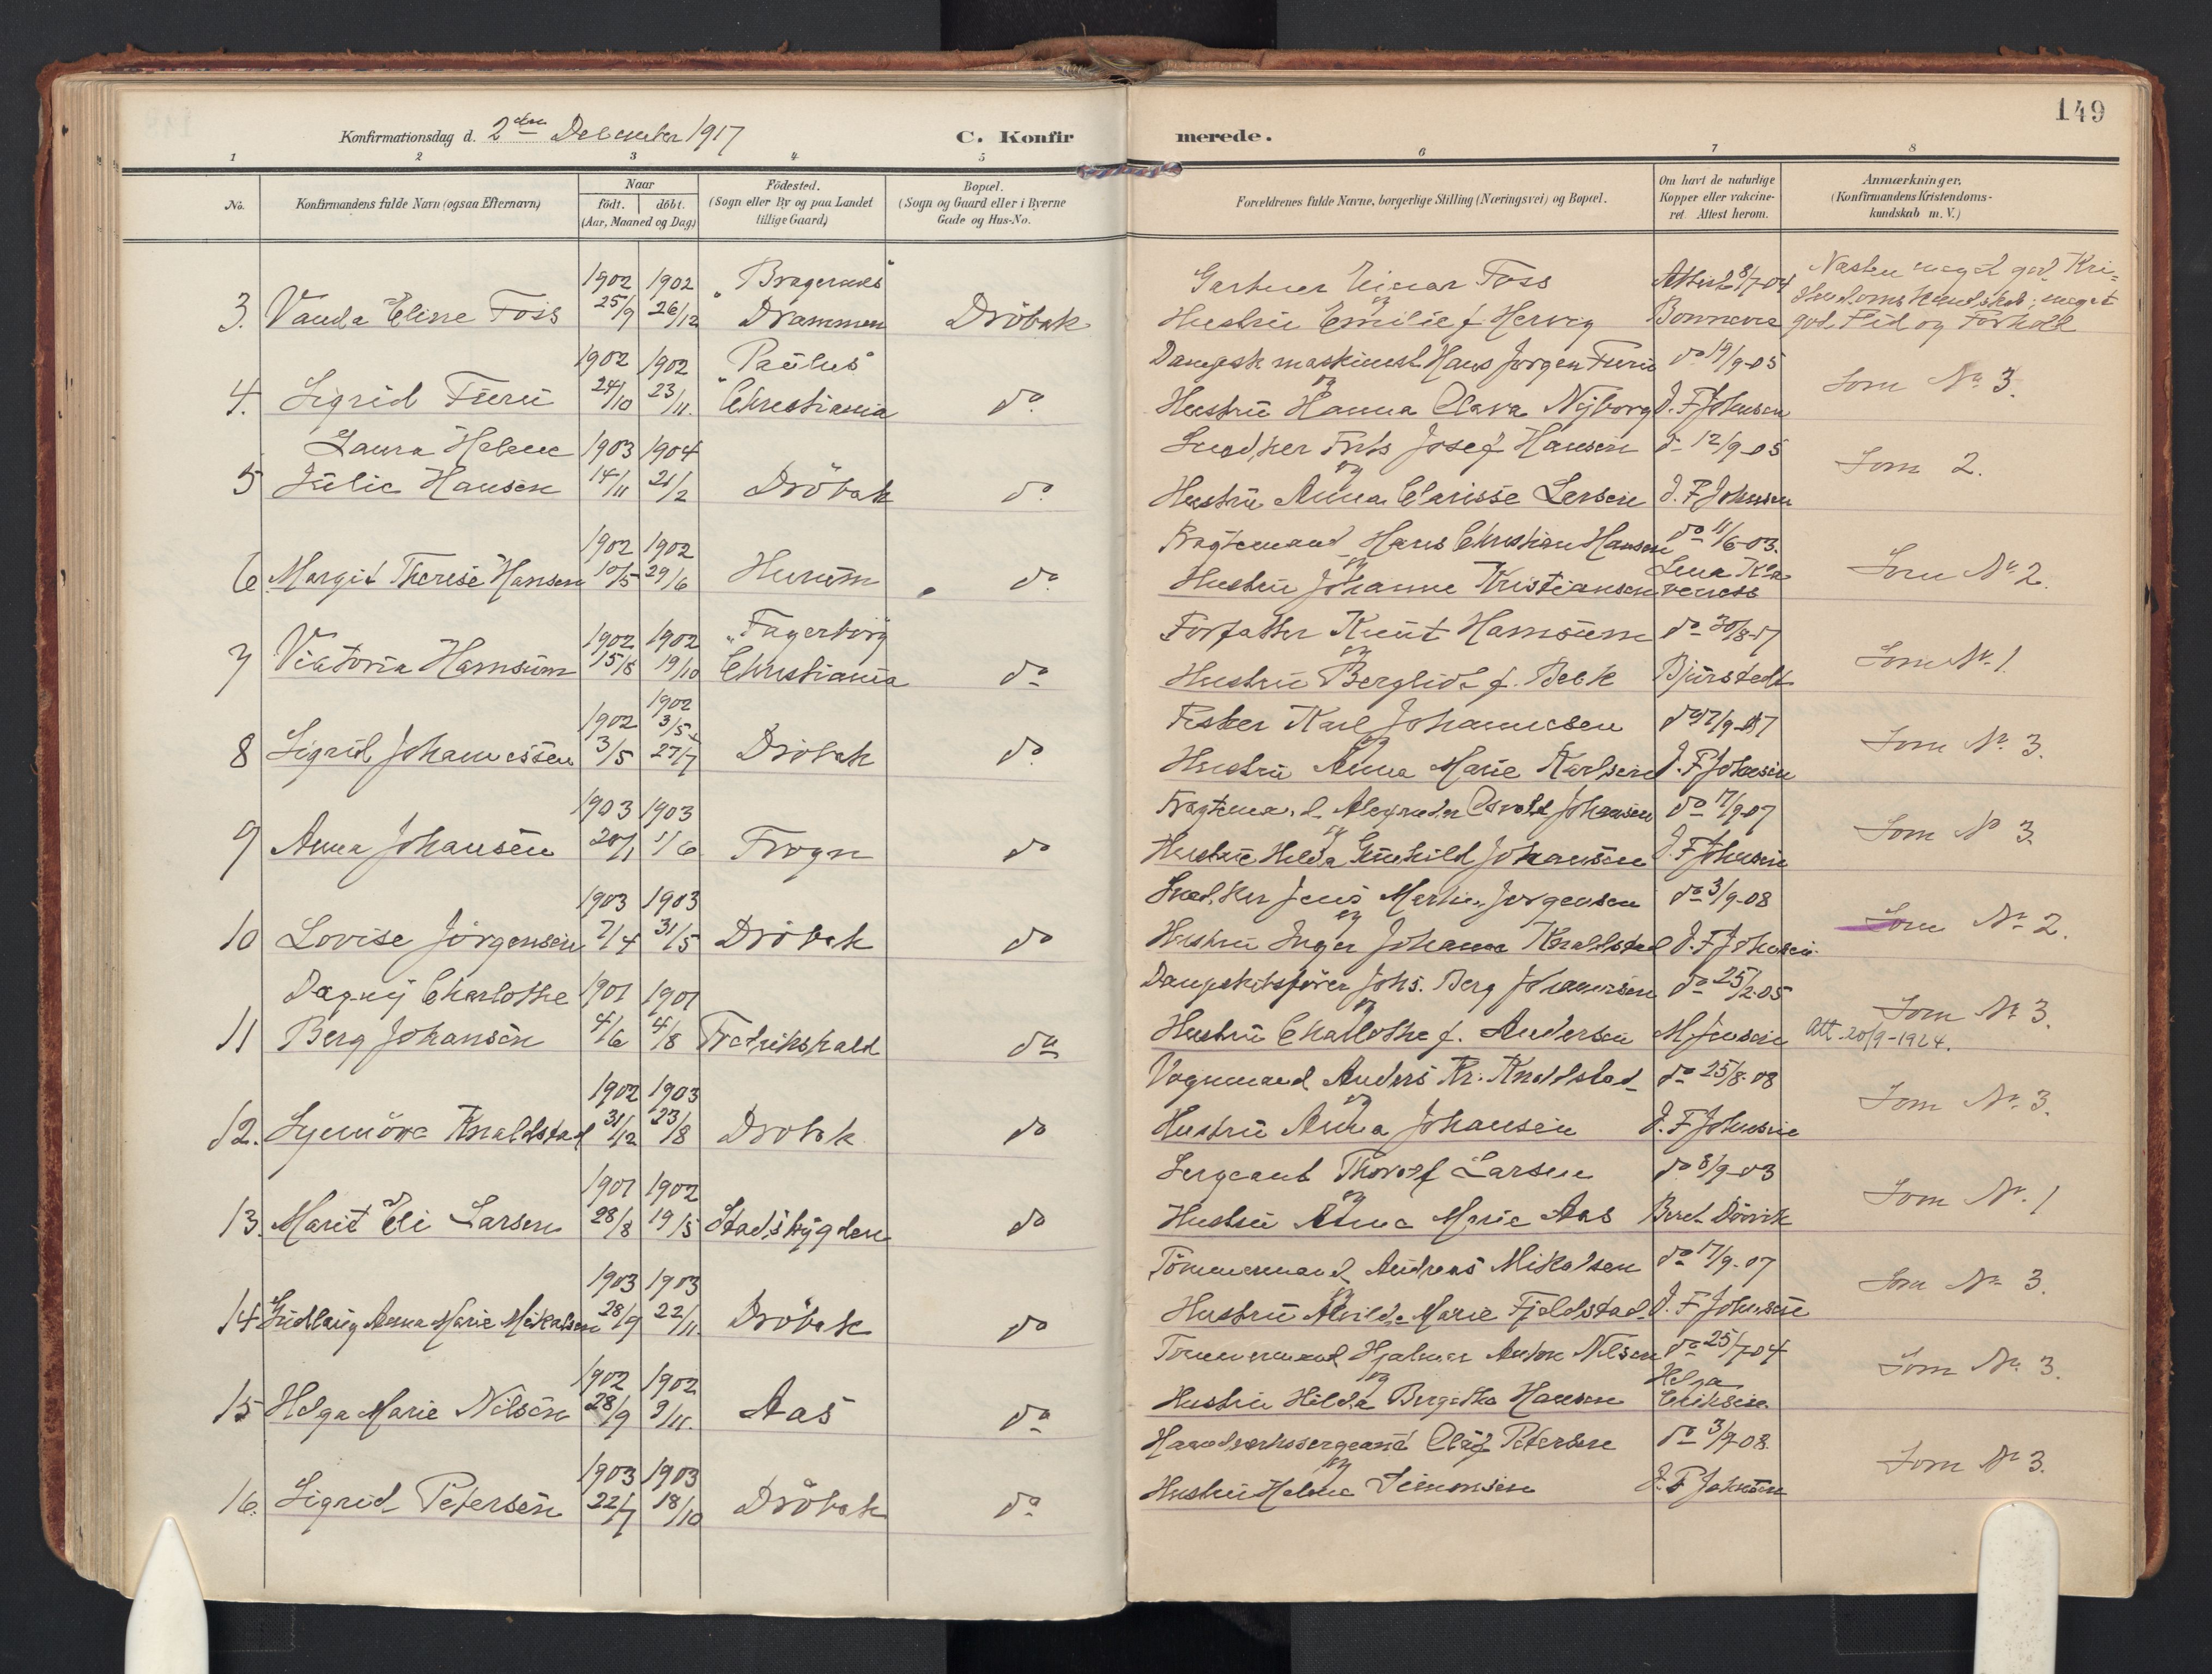 149
Konfirmationsdag d. 2den December 1917 C. Konfir merede.
1 2 3 4 5 6 7 8
No. Konfirmandens fulde Navn (ogsaa Efternavn) Naar født. døbt. (Aar, Maaned og Dag) Födested. (Sogn eller By og paa Landet tillige Gaard) Bopæl. (Sogn og Gaard eller i Byerne Gade og Hus-No. Forældrenes fulde Navne, borgerlige Stilling (Næringsvei) og Bopæl. Om havt de naturlige Kopper eller vakcineret Attest herom. Anmærkninger. (Konfirmandens Kristendomskundskab m. V.)
1902 1902 "Bragernes" Gartner Einar Foss Attest 8/7-04 Næsten meget god Kri=
3. Vanda Eline Foss 25/9 26/12 Drammen Dröbak og Hustru Emilie f. Hervig Bonnevie stendomskundskab; meget god Flid og Forhold
1902 1902 "Paulus" Dampsk. maskinist Hans Jørgen Furu do 19/9-05
4. Sigrid Furu 24/10 23/11. Christiania do. og Hustru Hanna Clara Nyborg J. F Johnsen Som No 3.
Laura Helene 1903 1904 Snedker Frits Josef Hansen do 12/9-05
5 Julie Hansen 14/11 21/2 Dröbak do. og Hustru Anna Clarisse Larsen J. F Johnsen Som 2.
1902 1902 Fragtemand Hans Christian Hansen do 11/6-03.
6 Margit Therese Hansen 10/5 29/6 Hurum do. og Hustru Johanne Kristiansen Lena Som No 2.
1902 1902 "Fagerborg Forfatter Knut Hamsun do 30/8-17
7 Viktoria Hamsun 15/8 19/10 Christiania do og Hustru Bergliot f. Bech Bjurstedt Som No. 1.
1902 1902 3/5 Fisker Karl Johannesen do 17/9-07
8 Sigrid Johannessen 3/5 27/7 Dröbak do. og Hustru Anna Marie Karlsen J. F Johnsen Som No 3.
1903 1903 Fragtemand Alexander Osvald Johansen do 17/9-07
9 Anna Johansen 20/1 1/6 Frogn do og Hustru Hilda Gunhild Johansen J. F Johnsen Som No 3
1903 1903 Snedker Jens Martin Jørgensen do 3/9-08
10 Lovise Jörgensen 7/4 31/5 Dröbak do og Hustru Inger Johanne Knaldstad J. F Johnsen. Som No 2.
Dagny Charlothe 1901 1901 Dampskibsfører Johs. Berg Johansen do 25/2-05
11 Berg Johansen 4/6 4/8 Fredrikshald do og Hustru Charlothe f. Andersen M Jensen Som No 3.
Att. 20/9-1924.
1902 1903 Vognmand Anders Kr. Knaldstad do 25/8-08
12. Synnöve Knaldstad 31/12 23/8 Drobak do og Hustru Anna Johansen J. F Johnsen Som No. 3.
1901 1902 Sergeant Thorolf Larsen do 8/9-03
13. Marit Eli Larsen 28/8 19/5 Stadsbygden do og Hustru Anna Marie Aas Som No. 1
1903 1903 Tömmermand Andreas Mikalsen do 17/9-07
14 Gudlaug Anna Marie Mikalsen 28/9 22/11. Dröbak do og Hustru Alvilde Marie Fjeldstad J. F Johnsen Som No 3.
1902 1902 Tömmermand Hjalmar Anton Nilsen do 25/7-04
15 Helga Marie Nilsen 28/9 9/11. Aas do og Hustru Hilda Bergithe Hansen Helga Eriksen Som No. 3.
1903 1903 Haandverkssergeant Olaf Petersen do 3/9-08.
16. Sigrid Petersen 22/7 18/10 Dröbak do og Hustru Helene Simonsen J. F Johnsen Som No 3.